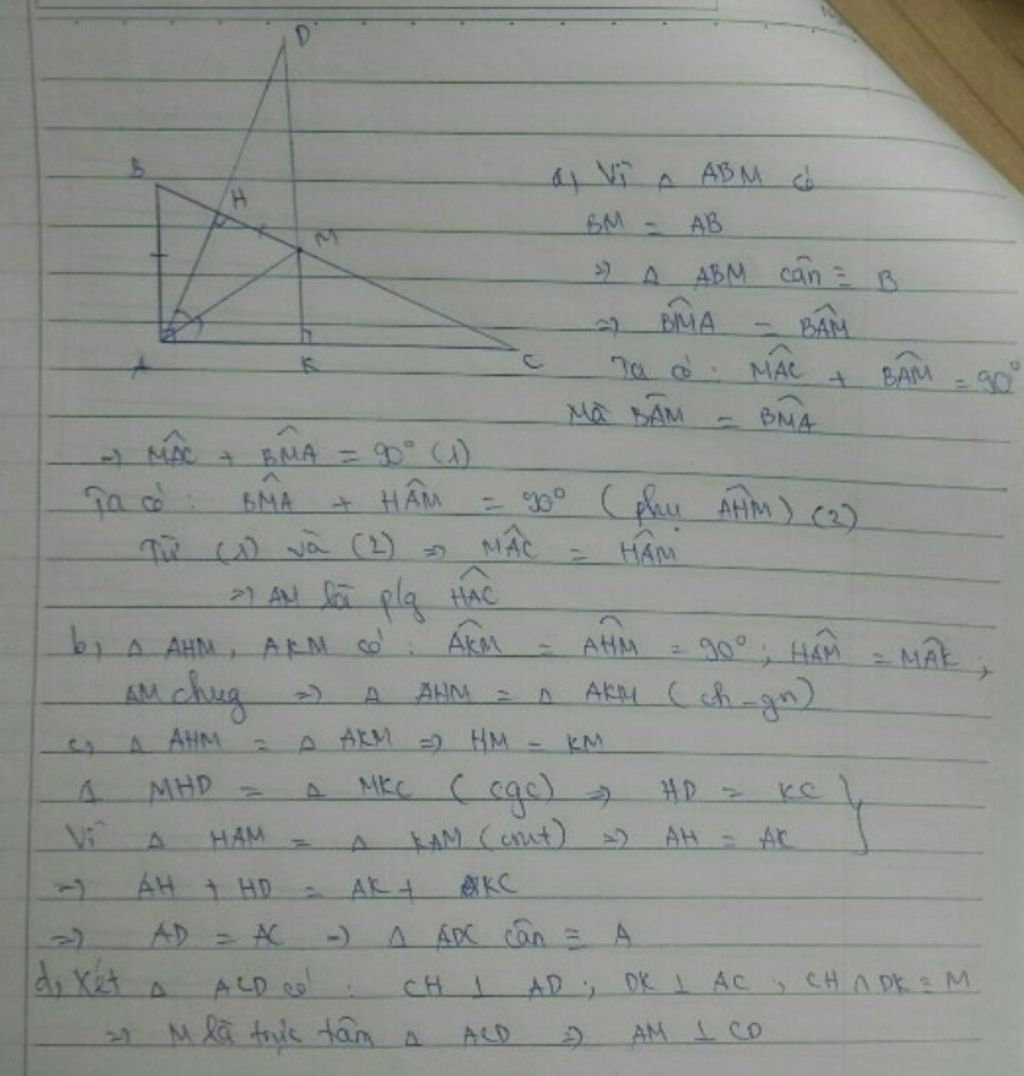 D
B
H
M
A
K
C
a, Vì Δ ABM có
BM = AB
=> Δ ABM cân ≡ B
=> BM̂A = BÂM
Ta có: MÂC + BÂM = 90°
Mà BÂM = BM̂A
=> MÂC + BM̂A = 90° (1)
Ta có: BM̂A + HÂM = 90° (phụ AĤM) (2)
Từ (1) và (2) => MÂC = HÂM
=> AM là p/g HÂC
b, Δ AHM, AKM có: AK̂M = AĤM = 90°; HÂM = MÂK;
AM chug => Δ AHM = Δ AKM (ch-gn)
c, Δ AHM = Δ AKM => HM = KM
Δ MHD = Δ MKC (cgc) => HD = KC }
Vì Δ HAM = Δ KAM (cmt) => AH = AK
=> AH + HD = AK + KC
=> AD = AC => Δ ADC cân ≡ A
d, Xét Δ ACD có: CH ⊥ AD; DK ⊥ AC; CH ∩ DK = M
=> M là trực tâm Δ ACD => AM ⊥ CD